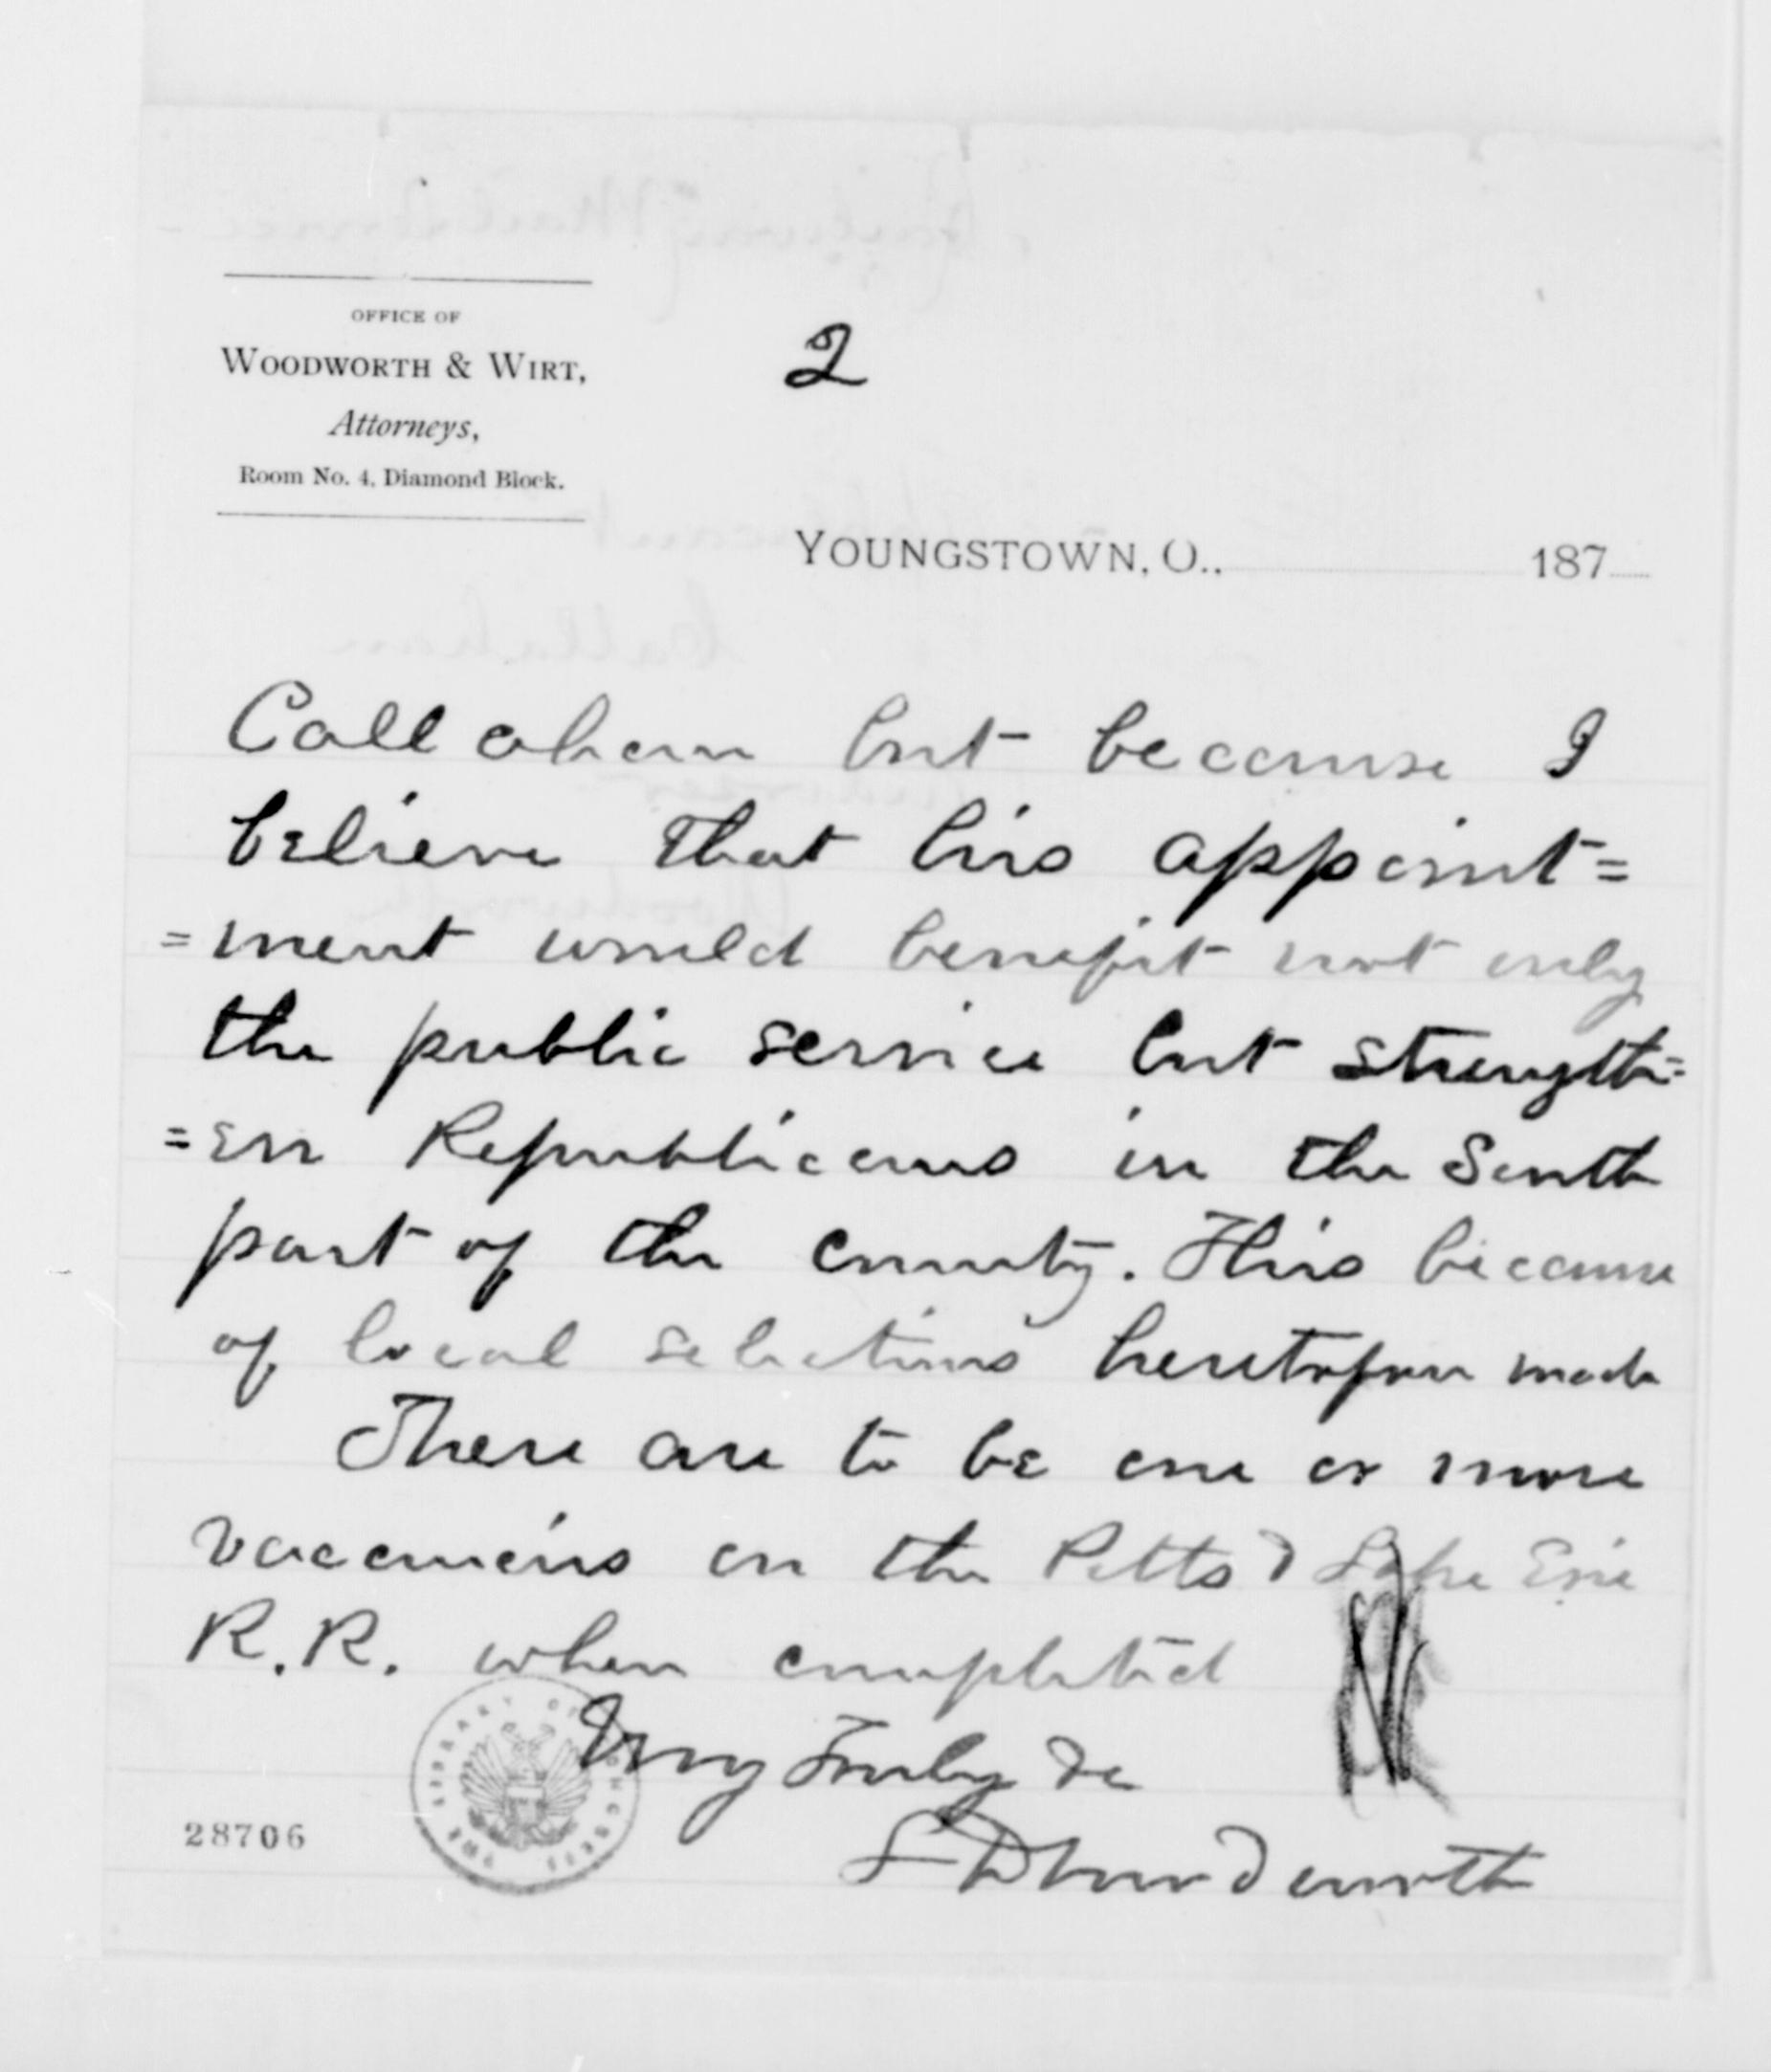 OFFICE OF
WOODWORTH & WIRT,
Attorneys,
Room No. 4, Diamond Block.
2
YOUNGSTOWN, O., 187
Callahan but because I
believe that his appoint=
=ment would benefit not only
the public service but strength=
=en Republicans in the South
part of the county. This because
of local selections heretofore made
There are to be one or more
vacancies on the Pitts & Lake Erie
R.R. when completed
Very Truly &c
L D Woodworth
28706
THE LIBRARY OF CONGRESS